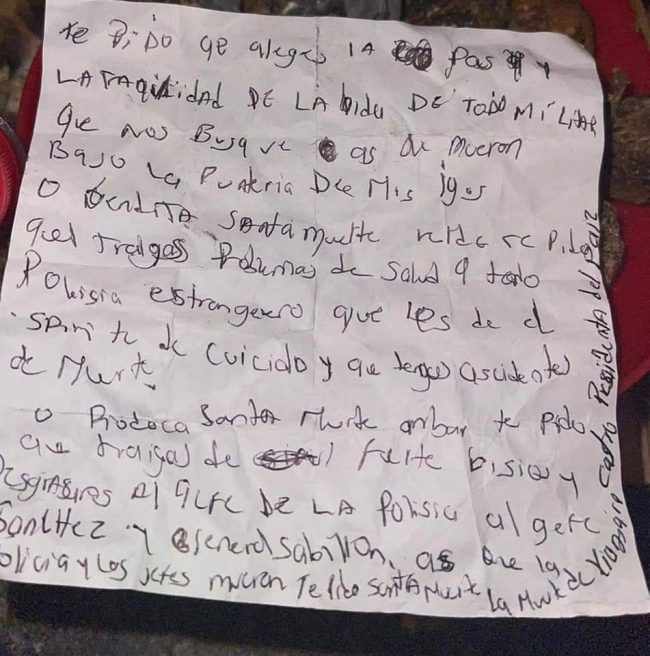 te PiDO qe aleges lA pas y
LA TAQiliDAD DE LA bida DE TODO Mi
que nos Busque as de mueron
BAJO LA PUNTERIA DEE Mis
O BENDITA SANTA muerte te Pido
quel traigas Poblemas de salud A todo
Polissia estrangero que les de el
spiri te de cuicido y que tengas ascidentes
de Murte.
O Prodoca Santa Murte anbar te Pido
que traigas de fuerte bisios y
Desgrasias Al gefe DE LA Polissia al gefe
SANCHEZ y generel Sabillon, as que la
Policia y los jefes mueron Te Pido SANTA Muerte
la Murte de Xiomara Castro Presidenta del Pais